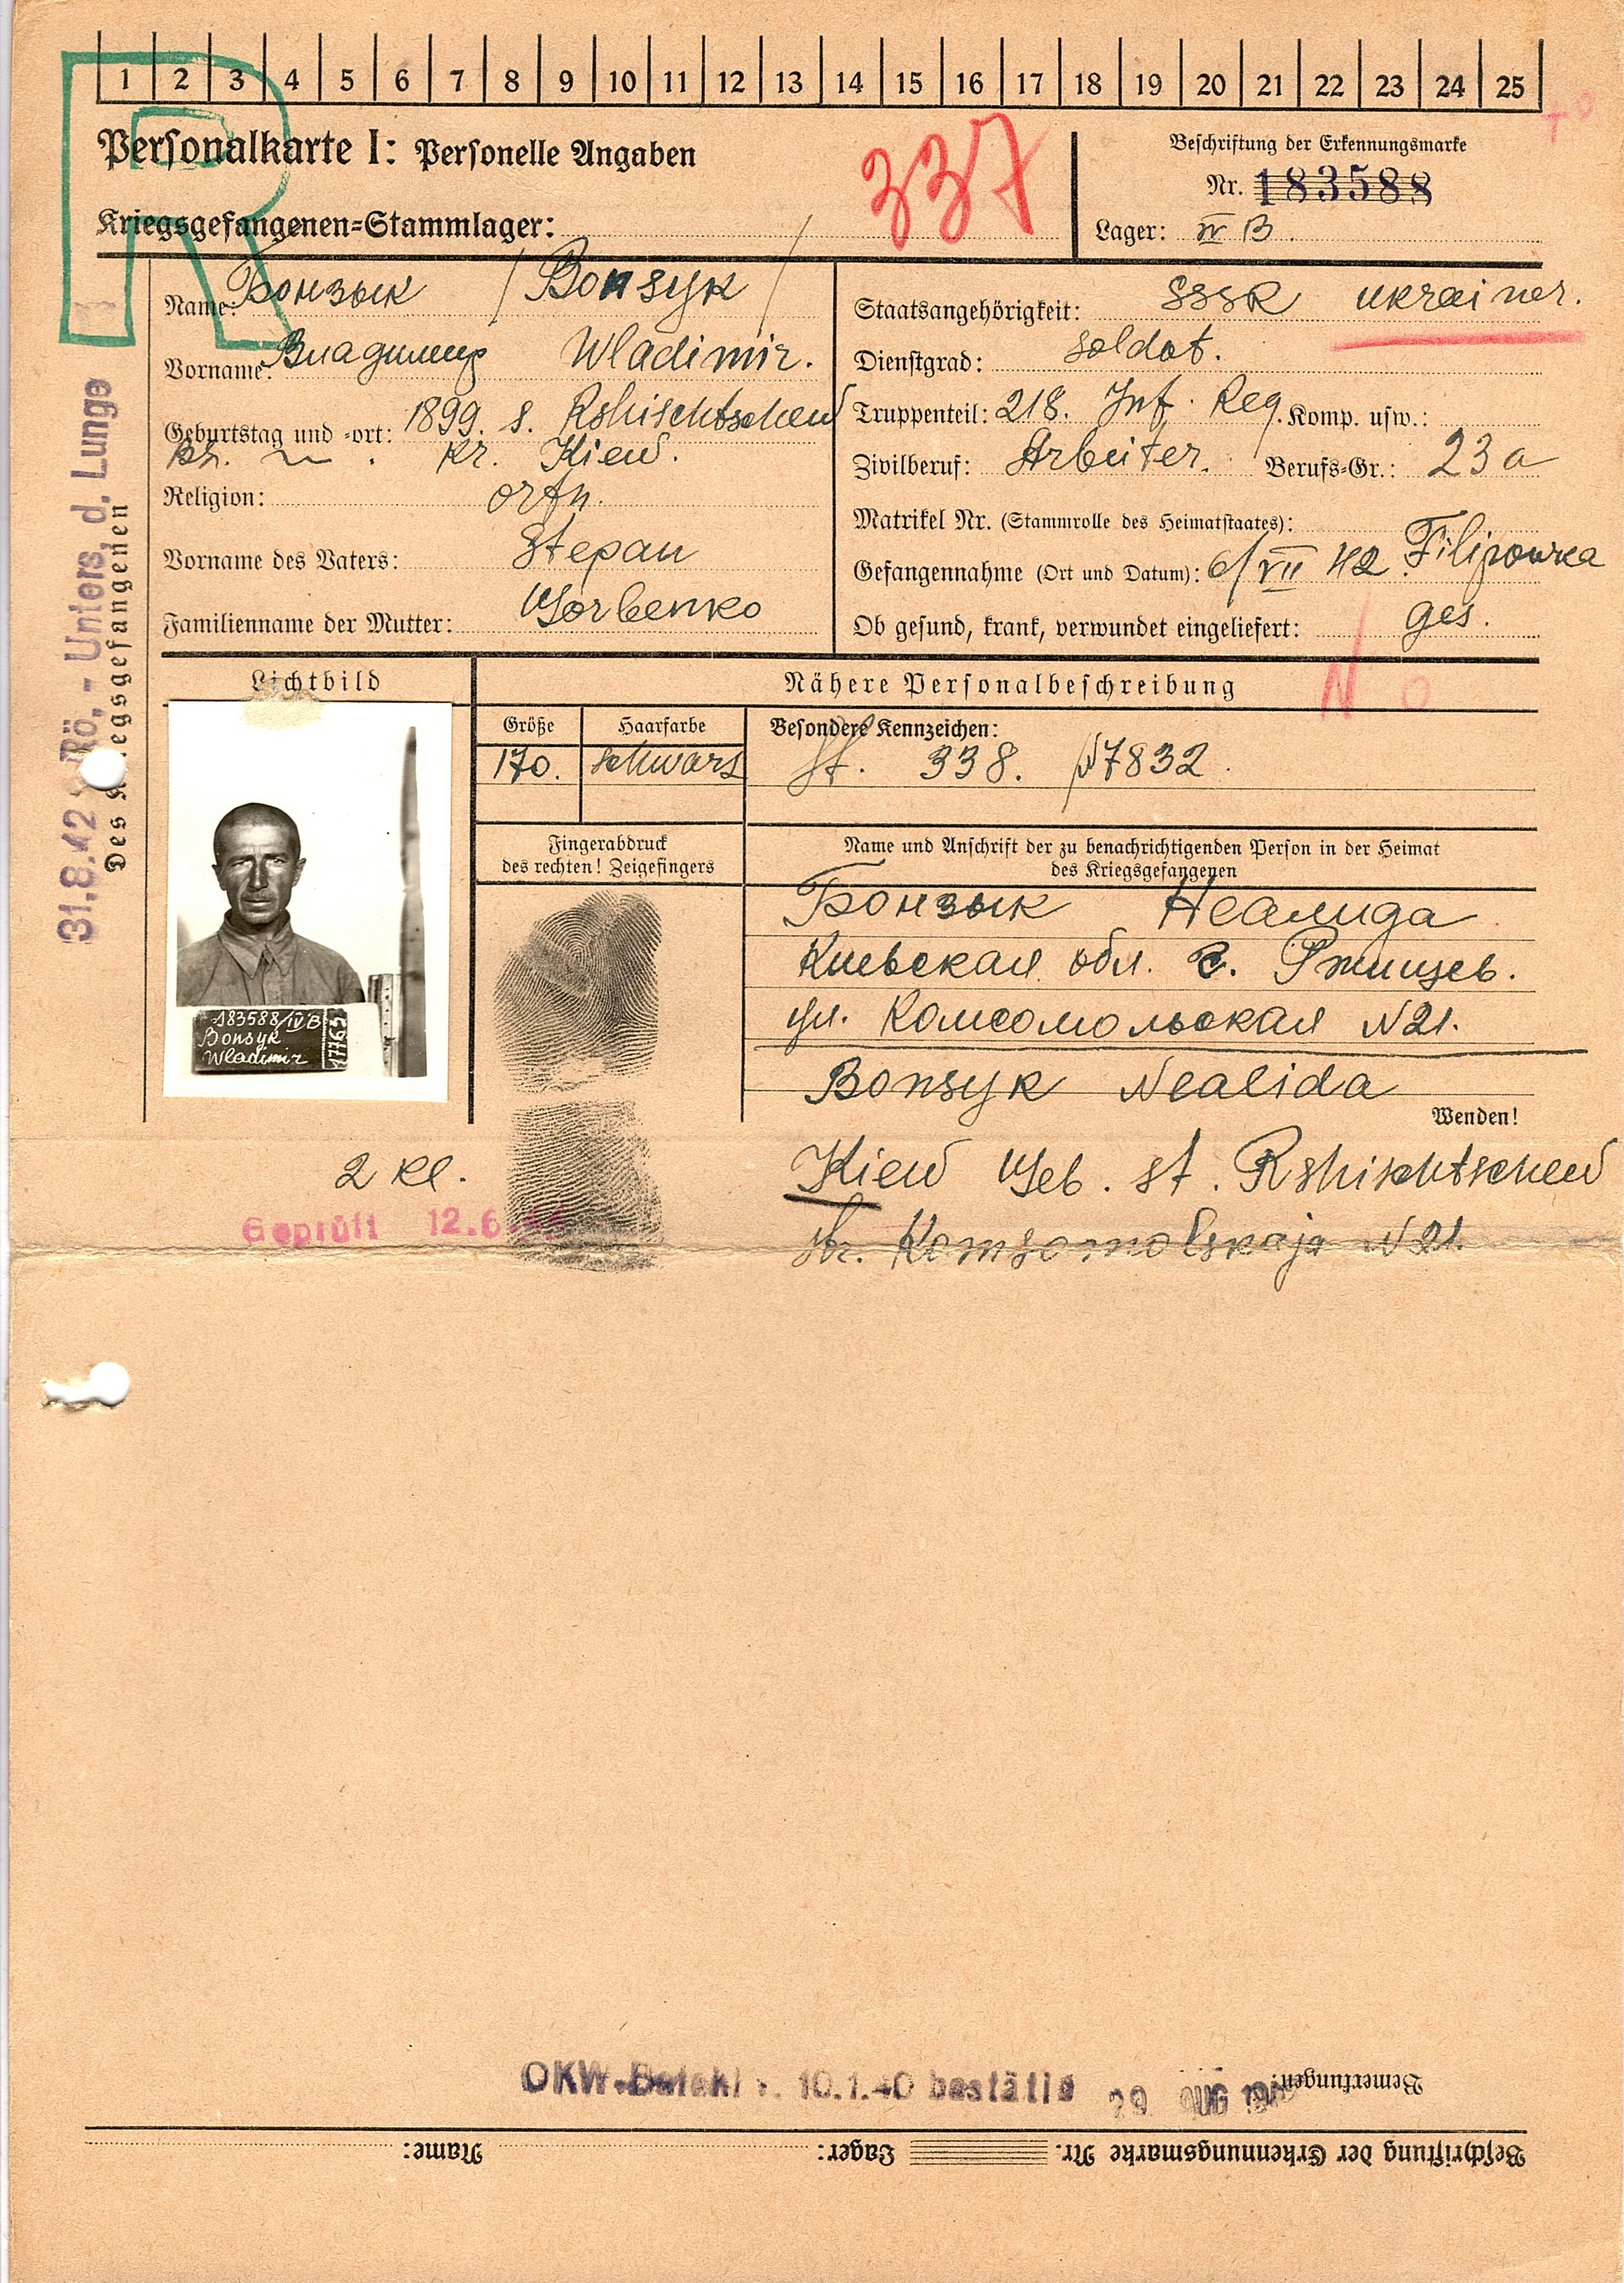 1 2 3 4 5 6 7 8 9 10 11 12 13 14 15 16 17 18 19 20 21 22 23 24 25
R
Personalkarte I: Personelle Angaben
337
Beschriftung der Erkennungsmarke
Nr. 183588
Kriegsgefangenen=Stammlager:
Lager: IV B.
Name: Бонзык / Bonsyk /
Vorname: Владимир Wladimir.
Geburtstag und =ort: 1899. s. Rshischtschew
Kr. Kiew.
Religion: orth.
Vorname des Vaters: Stepan
Familienname der Mutter: Gorbenko
Staatsangehörigkeit: SSSR Ukrainer.
Dienstgrad: Soldat.
Truppenteil: 218. Inf. Reg. Komp. usw.:
Zivilberuf: Arbeiter. Berufs=Gr.: 23a
Matrikel Nr. (Stammrolle des Heimatstaates):
Gefangennahme (Ort und Datum): 6/VII 42. Filipowka
Ob gesund, krank, verwundet eingeliefert: ges.
N O
31.8.42 Rö.- Unters. d. Lunge
Des Kriegsgefangenen
Lichtbild
Nähere Personalbeschreibung
Größe Haarfarbe Besondere Kennzeichen:
170. schwarz St. 338. N7832.
183588/IV B
Bonsyk
Wladimir
17763
Fingerabdruck
des rechten! Zeigefingers
Name und Anschrift der zu benachrichtigenden Person in der Heimat
des Kriegsgefangenen
Бонзык Неалида
Киевская обл. с. Ржищев.
ул. Комсомольская N21.
Bonsyk Nealida
Wenden!
Kiew Geb. st. Rshischtschew
str. Komsomolskaja N21.
2 Kl.
Geprüft 12.6.
OKW-Befehl v. 10.1.40 bestätig 29 AUG
Bemerkungen:
Beschriftung der Erkennungsmarke Nr. Lager: Name: